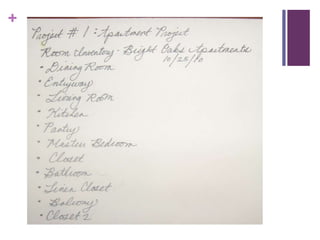 +
Project # 1: Apartment Project
Room Inventory - Bright Oaks Apartments
10/25/10
• Dining Room
• Entryway
• Living Room
• Kitchen
• Pantry
• Master Bedroom
• Closet
• Bathroom
• Linen Closet
• Balcony
• Closet 2